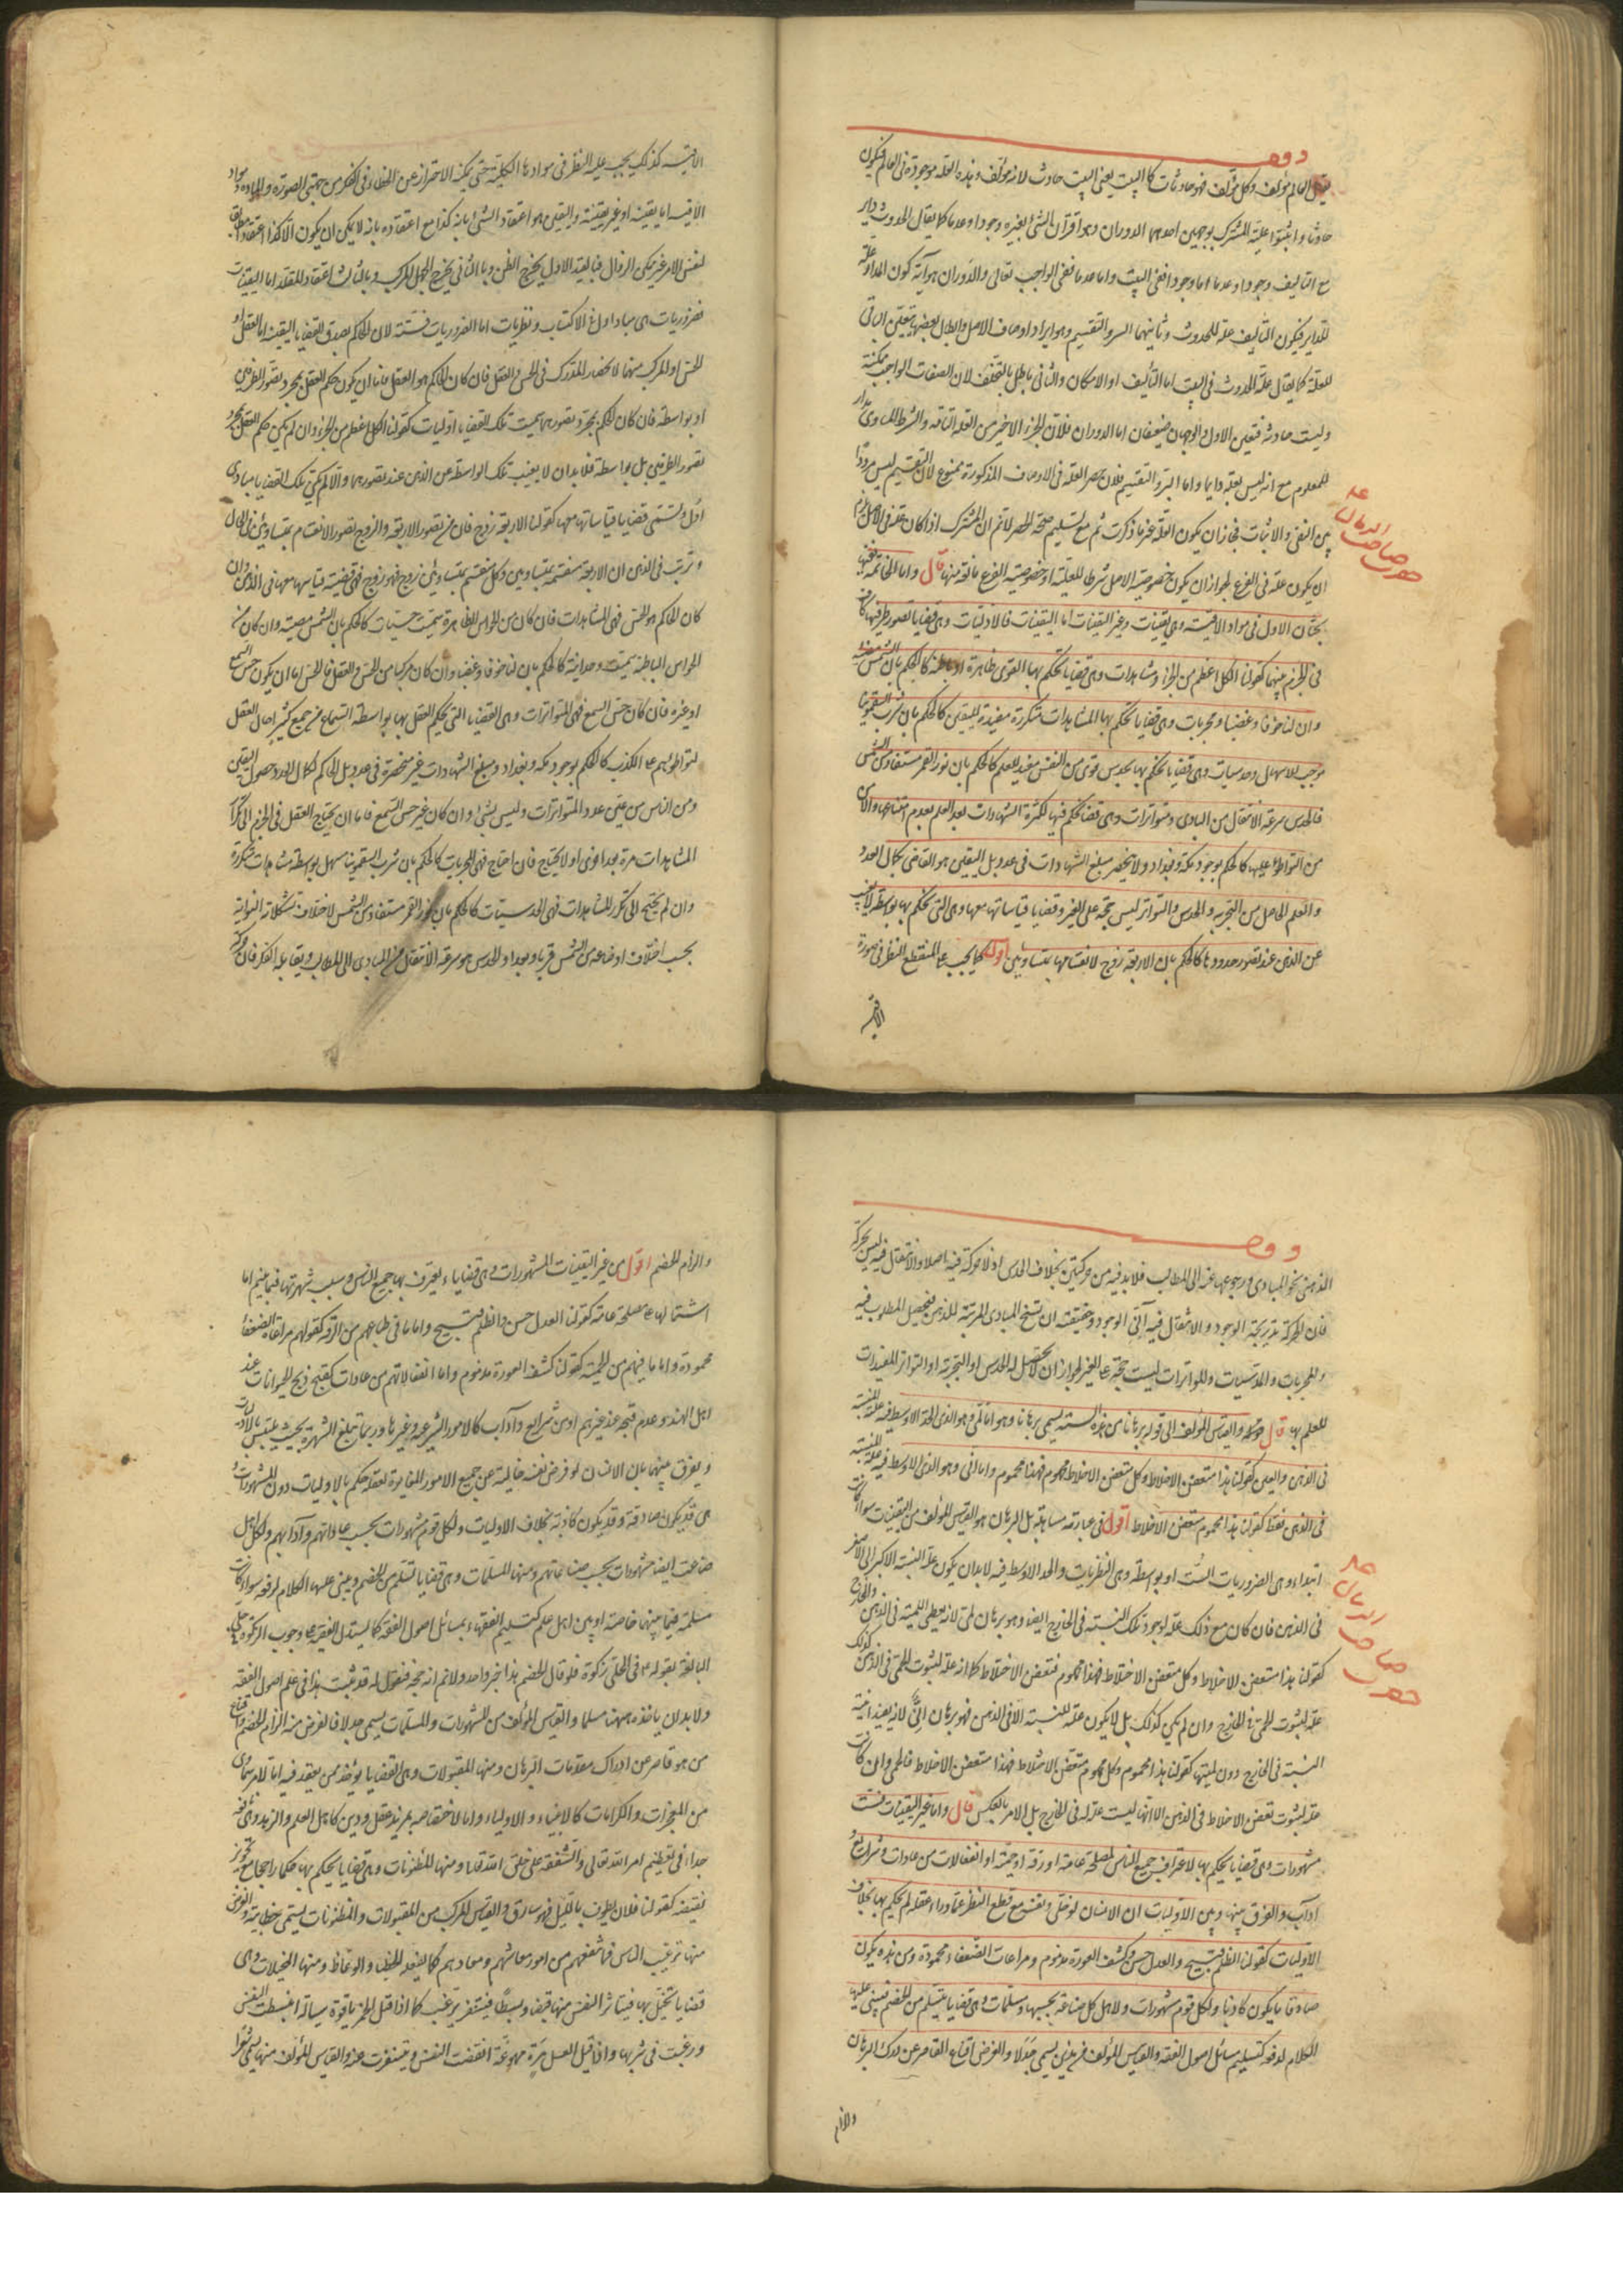 وقف
يقال العالم مؤلف وكل مؤلف فهو حادث كالبيت يعني البيت حادث لانه مؤلف وهذه العلة موجودة في العالم فيكون
حادثا واثبتوا علية المشترك بوجهين احدهما الدوران وهو اقتران الشئ بغيره وجودا وعدما كما يقال الحدوث دائر
مع التاليف وجودا وعدما اما وجودا ففي البيت واما عدما ففي الواجب تعالى والدوران هو آية كون المدار علة
للدائر فيكون التأليف علة للحدوث وثانيهما السبر والتقسيم وهو ايراد اوصاف الاصل وابطال بعضها ليتعين الباقي
للعلة كما يقال علة الحدوث في البيت اما التأليف او الامكان والثاني باطل بالتخلف لان الصفات الواجب ممكنة
وليست حادثة فتعين الاول والوجهان ضعيفان اما الدوران فلان الجزء الاخير من العلة التامة والشرط المساوي مدار
للمعلوم مع انه ليس بعلة دائما واما السبر والتقسيم فلان حصر العلة في الاوصاف المذكورة ممنوع لان التقسيم ليس مرددا
بين النفي والاثبات فجاز ان يكون العلة غير ما ذكرت ثم مع تسليم صحة الحصر لا نم ان المشترك اذا كان علة في الاصل يلزم
ان يكون علة في الفرع لجواز ان يكون خصوصية الاصل شرطا للعلية او خصوصية الفرع مانعة منها قال واما الخاتمة ففيها
بحثان الاول في مواد الاقيسة وهي يقينيات وغير اليقينيات اما اليقينيات فالاوليات وهي قضايا تصور طرفيها كاف
في الجزم بينهما كقولنا الكل اعظم من الجزء ومشاهدات وهي قضايا تحكم بها القوى ظاهرة او باطنة كالحكم بان الشمس مضيئة
وان لنا خوفا وغضبا ومجربات وهي قضايا تحكم بها المشاهدات متكررة مفيدة لليقين كالحكم بان شرب السقمونيا
موجب للاسهال وحدسيات وهي قضايا يحكم بها بحدس قوي من النفس مفيد للعلم كالحكم بان نور القمر مستفاد من الشمس
فالحدس سرعة الانتقال من المبادي ومتواترات وهي قضايا تحكم فيها لكثرة الشهادات بعد العلم بعدم امتناعها والامن
من التواطؤ عليها كالحكم بوجود مكة وبغداد ولا ينحصر مبلغ الشهادات في عدد بل اليقين هو القاضي بكمال العدد
والعلم الحاصل من التجربة والحدس والتواتر ليس حجة على الغير وقضايا قياساتها معها وهي التي تحكم بها بواسطة لا تغيب
عن الذهن عند تصور حدودها كالحكم بان الاربعة زوج لانقسامها بمتساويين اقول كما يجب على المنطقي النظر في صورة
الاقيسة
الاقيسة كذلك يجب عليه النظر في موادها الكلية حتى يمكنه الاحتراز عن الخطاء في الفكر من جهتي الصورة والمادة ومواد
الاقيسة اما يقينية او غير يقينية واليقين هو اعتقاد الشئ بانه كذا مع اعتقاده بانه لا يمكن ان يكون الا كذا اعتقادا مطابقا
لنفس الامر غير ممكن الزوال فبالقيد الاول يخرج الظن وبالثاني يخرج الجهل المركب وبالثالث اعتقاد المقلد اما اليقينيات
فضروريات هي مبادي اول في الاكتساب ونظريات اما الضروريات فستة لان الحاكم بصدق القضايا اليقينية اما العقل او
الحس او المركب منهما لانحصار المدرك في الحس والعقل فان كان الحاكم هو العقل فاما ان يكون حكم العقل بمجرد تصور الطرفين
او بواسطة فان كان الحكم بمجرد تصورهما سميت تلك القضايا اوليات كقولنا الكل اعظم من الجزء وان لم يكن حكم العقل بمجرد
تصور الطرفين بل بواسطة فلا بد ان لا يغيب تلك الواسطة عن الذهن عند تصورهما والا لم يكن تلك القضايا مبادي
اول وتسمى قضايا قياساتها معها كقولنا الاربعة زوج فان من تصور الاربعة والزوج تصور الانقسام بمتساويين في الحال
وترتب في الذهن ان الاربعة منقسمة بمتساويين وكل منقسم بمتساويين زوج فهو زوج فهي قضية قياسها معها في الذهن وان
كان الحاكم هو الحس فهي المشاهدات فان كان من الحواس الظاهرة سميت حسيات كالحكم بان الشمس مضيئة وان كان من
الحواس الباطنة سميت وجدانية كالحكم بان لنا خوفا وغضبا وان كان مركبا من الحس والعقل فالحس اما ان يكون حس السمع
او غيره فان كان حس السمع فهي المتواترات وهي القضايا التي يحكم العقل بها بواسطة السماع من جمع كثير احال العقل
تواطؤهم على الكذب كالحكم بوجود مكة وبغداد ومبلغ الشهادات غير منحصرة في عدد بل الحاكم لكمال العدد حصول اليقين
ومن الناس من عين عدد المتواترات وليس بشئ وان كان غير حس السمع فاما ان يحتاج العقل في الجزم الى تكرار
المشاهدات مرة بعد اخرى او لا يحتاج فان احتاج فهي المجربات كالحكم بان شرب السقمونيا مسهل بواسطة مشاهدات متكررة
وان لم يحتج الى تكرر المشاهدات فهي الحدسيات كالحكم بان نور القمر مستفاد من الشمس لاختلاف تشكلاته النورانية
بحسب اختلاف اوضاعه من الشمس قربا وبعدا والحدس هو سرعة الانتقال من المبادي الى المطالب ويقابله الفكر فان حركة
وقف
الذهن نحو المبادي ورجوعها عنه الى المطالب فلا بد فيه من حركتين بخلاف الحدس اذ لا حركة فيه اصلا والانتقال فيه ليس بحركة
فان الحركة تدريجية الوجود والانتقال فيه آني الوجود وحقيقته ان تسنح المبادي المرتبة للذهن فيحصل المطلوب فيه
والمجربات والحدسيات والمتواترات ليست حجة على الغير لجواز ان لا يحصل له الحدس او التجربة او التواتر المفيدات
للعلم بها قال والقياس المؤلف من هذه الستة يسمى برهانا وهو اما لمي وهو الذي الحد الاوسط فيه علة للنسبة
في الذهن والعين كقولنا هذا متعفن الاخلاط وكل متعفن الاخلاط محموم فهذا محموم واما اني وهو الذي الاوسط فيه علة للنسبة
في الذهن فقط كقولنا هذا محموم متعفن الاخلاط اقول في عبارته مساهلة بل البرهان هو القياس المؤلف من اليقينيات سواء كانت
ابتداء وهي الضروريات الست او بواسطة وهي النظريات والحد الاوسط فيه لا بد ان يكون علة لنسبة الاكبر الى الاصغر
في الذهن فان كان مع ذلك علة لوجود تلك النسبة في الخارج ايضا فهو برهان لمي لانه يعطي اللمية في الذهن والخارج
كقولنا هذا متعفن الاخلاط وكل متعفن الاخلاط محموم فهذا محموم فتعفن الاخلاط كما انه علة لثبوت الحمى في الذهن كذلك
علة لثبوت الحمى في الخارج وان لم يكن كذلك بل لا يكون علة للنسبة الا في الذهن فهو برهان اني لانه يفيد انية
النسبة في الخارج دون لميتها كقولنا هذا محموم وكل محموم متعفن الاخلاط فهذا متعفن الاخلاط فالحمى وان كانت
علة لثبوت تعفن الاخلاط في الذهن الا انها ليست علة له في الخارج بل الامر بالعكس قال واما غير اليقينيات فست
مشهورات وهي قضايا يحكم بها لاعتراف جميع الناس لمصلحة عامة او رقة او حمية او انفعالات من عادات وشرايع و
اداب والفرق بينها وبين الاوليات ان الانسان لو خلى ونفسه مع قطع النظر عما وراء عقله لم يحكم بها بخلاف
الاوليات كقولنا الظلم قبيح والعدل حسن وكشف العورة مذموم ومراعات الضعفاء محمودة ومن هذه يكون
صادقا ما يكون كاذبا ولكل قوم مشهورات ولاهل كل صناعة بحسبها ومسلمات وهي قضايا يتسلم من الخصم فيبنى عليها
الكلام لدفعه كتسليم مسائل اصول الفقه والقياس المؤلف من هذين يسمى جدلا والغرض اقناع القاصر عن درك البرهان
والزام
والزام الخصم اقول من غير اليقينيات المشهورات وهي قضايا يعترف بها جميع الناس وسبب شهرتها فيما بينهم اما
اشتمالها على مصلحة عامة كقولنا العدل حسن والظلم قبيح واما ما في طباعهم من الرقة كقولهم مراعاة الضعفاء
محمودة واما ما فيهم من الحمية كقولنا كشف العورة مذموم واما انفعالاتهم من عادات كقبح ذبح الحيوانات عند
اهل الهند وعدم قبحه عند غيرهم او من شرايع وآداب كالامور الشرعية وغيرها وربما تبلغ الشهرة بحيث يلتبس بالاوليات
ويفرق بينهما بان الانسان لو فرض نفسه خالية عن جميع الامور المغايرة لعقله حكم بالاوليات دون المشهورات و
هي قد يكون صادقة وقد يكون كاذبة بخلاف الاوليات ولكل قوم مشهورات بحسب عاداتهم وآدابهم ولكل اهل
صناعة ايضا مشهورات بحسب صناعاتهم ومنها المسلمات وهي قضايا تتسلم من الخصم ويبنى عليها الكلام لدفعه سواء كانت
مسلمة فيما بينهما خاصة او بين اهل علم كتسليم الفقهاء بمسائل اصول الفقه كما يستدل الفقيه على وجوب الزكوة في حلي
البالغة بقوله ع م في الحلي زكوة فلو قال الخصم هذا خبر واحد ولا نم انه حجة فنقول له قد ثبت هذا في علم اصول الفقه
ولا بد ان ياخذه ههنا مسلما والقياس المؤلف من المشهورات والمسلمات يسمى جدلا فالغرض منه الزام الخصم واقناع
من هو قاصر عن ادراك مقدمات البرهان ومنها المقبولات وهي القضايا يؤخذ ممن يعتقد فيه اما لامر سماوي
من المعجزات والكرامات كالانبياء والاولياء واما لاختصاصه بمزيد عقل ودين كاهل العلم والزهد وهي نافعة
جدا في تعظيم امر الله تعالى والشفقة على خلق الله تعالى ومنها المظنونات وهي قضايا يحكم بها حكما راجحا مع تجويز
نقيضه كقولنا فلان يطوف بالليل فهو سارق والقياس المركب من المقبولات والمظنونات يسمى خطابة والغرض
منها ترغيب الناس فيما ينفعهم من امور معاشهم ومعادهم كما يفعله الخطباء والوعاظ ومنها المخيلات وهي
قضايا يتخيل بها فيتاثر النفس منها قبضا وبسطا فينتفر او يرغب كما اذا قيل الخمر ياقوتة سيالة انبسطت النفس
ورغبت في شربها واذا قيل العسل مرة مهوعة انقبضت النفس وتنفرت عنه والقياس المؤلف منها يسمى شعرا